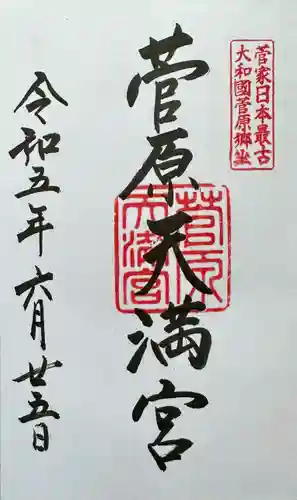 菅家日本最古
大和國菅原鄉坐
菅原天満宮
菅原
天満宮
令和五年六月廿五日